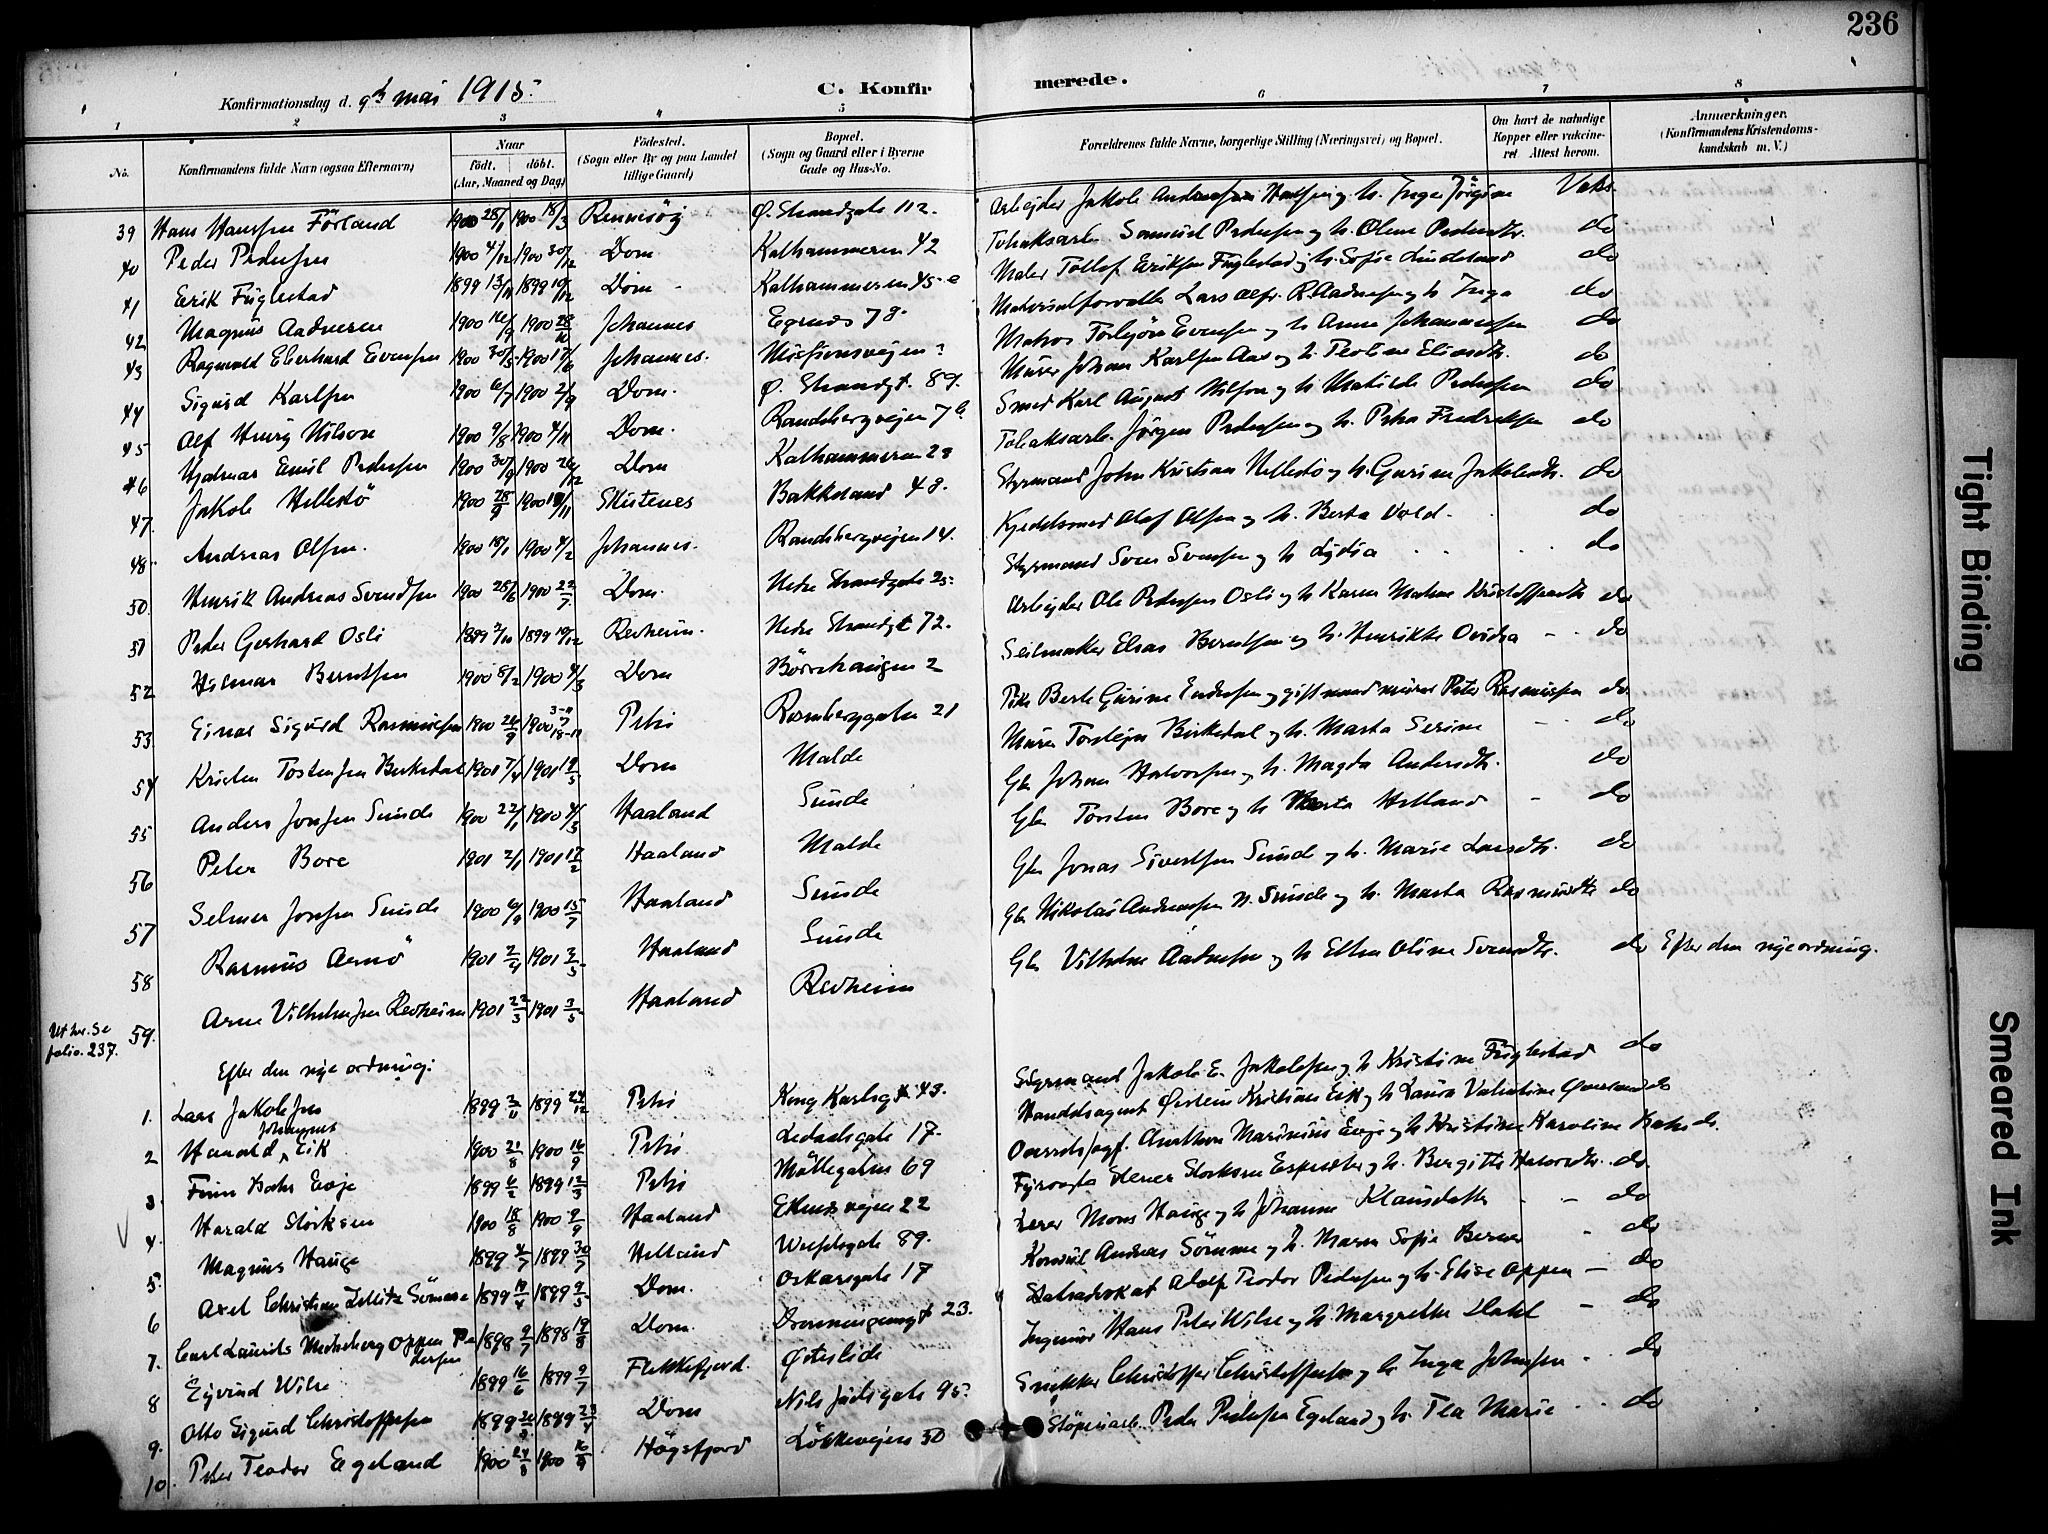 236
Konfirmationsdag d. 9de mai 1915.
C. Konfirmerede.
1 2 3 4 5 6 7 8
No. Konfirmandens fulde Navn (ogsaa Efternavn) Naar födt. döbt. (Aar, Maaned og Dag) Födested. (Sogn eller By og paa Landet tillige Gaard) Bopæl. (Sogn og Gaard eller i Byerne Gade og Hus-No. Forældrenes fulde Navne, borgerlige Stilling (Næringsvei) og Bopæl. Om havt de naturlige Kopper eller vakcineret Attest herom. Anmærkninger. (Konfirmandens Kristendomskundskab m. V.)
39 Hans Hanssen Förland 1900 1900 18/3 Rennesöy Ø. Strandgate 112. Arbejder Jakob Andreas Hanssen og h. Inger Jörgine Vaks.
40 Peder Pedersen 1900 4/12 1900 30/12 Dom. Kalhammeren 42 Tobaksarb. Samuel Pedersen og h. Oline Pedersdtr. do
41 Erik Fuglestad 1899 13/11 1899 19/12 Dom Kalhammeren 45 Maler Tollef Eriksen Fuglestad og h. Sofie Lindland do
42 Magnus Aadnesen 1900 1900 28/10 Johannes Egenes 78. Materialforvalter Lars Alfr. R. Aadnesen og h. Inga do
43 Ragnvald Eberhard Evensen 1900 30/5 1900 17/6 Johannes. Missionsvejen Matros Torbjörn Evensen og h. Anne Johannessen do
44 Sigurd Karlsen 1900 6/7 1900 2/9 Dom. Ø. Strandgt. 89. Murer Johan Karlsen Aas og h. Teoline Eliasdtr. do
45 Alf Henry Nilson 1900 9/8 1900 4/11 Dom. Randabergvejen 7b Smed Karl August Nilson og h. Matilde Pedersen do
46 Hjalmar Emil Pedersen 1900 30/9 1900 26/12 Dom Kalhammeren 28 Tobaksarb. Jörgen Pedersen og h. Petra Fredriksen do
47. Jakob Hellestö 1900 28/9 1900 Skistenes Bakkeland 48. Styrmand John Kristian Hellestö og h. Gurine Jakobsdtr. do
48. Andreas Olsen. 1900 18/1 1900 4/2 Johannes. Randabergvejen 14. Kjedelsmed Olaf Olsen og h. Berta Vold. do
50 Henrik Andreas Svendsen 1900 28/6 1900 22/7 Dom. Nedre Strandgate 25. Styrmand Sven Svensen og h. Lydia do
51 Peder Gerhard Osli 1899 2/11 1899 19/12 Revheim. Nedre Strandgt 72. Arbejder Ole Pedersen Osli og h. Karen Malene Kristoffersdtr do
52 Hilmar Berntsen 1900 8/2 1900 4/3 Dom Börehaugen 2 Seilmaker Elias Berntsen og h. Henrikke Ovidia do
53. Einar Sigurd Rasmussen 1900 26/9 1900 Petri Rosenberggaten 21 Pike Berte Gurine Endresen og gift mand murer Peter Rasmussen do.
54 Kristen Tostensen Birkedal 1901 7/4 1901 19/5 Dom Malde Murer Torstejn Birkedal og h. Marta Serine do
55 Anders Jonsen Sunde 1900 22/1 1900 4/3 Haaland Sunde Gbr Johan Halvorsen og h. Magda Andersdtr. do
56 Peter Bore 1901 2/1 1901 17/2 Haaland Malde Gbr Torsten Bore og h Marta Helland do
57 Selmer Jonsen Sunde 1900 1900 15/7 Haaland Sunde Gbr Jonas Sivertsen Sunde og h. Marie Larsdtr. do
58 Rasmus Aernö 1901 2/4 1901 3/5 Haaland Sunde Gbr Nikolai Andreassen n. Sunde og h. Marta Rasmusdtr do
59. Arne Vilhelmsen Revheim 1901 22/3 1901 3/5 Haaland Revheim Gbr Vilhelm Aadnesen og h Ellen Oline Svendsdtr. do Efter den nye ordning.
Ut her. Se folio. 237.
Efter den nye ordning:
1. Lars Jakobsen 1899 3/11 1899 24/12 Petri Kong Karlsgt 43. Styrmand Jakob E. Jakobsen og h Kristine Fuglestad do
2 Harald Johannes Eik 1900 21/8 1900 16/9 Petri. Ledaalsgate 17. Handelsagent Øistein Kristian Eik og h Laura Valentine do
3. Finn Bahr Evje 1899 6/2 1899 12/3 Petri Möllegaten 69 Overretssagf. Marinius Evje og h Kristine Karoline Bahr do.
4. Harald Störksen 1900 18/8 1900 9/9 Haaland Ekenesvejen 22 Fyrvogter Störksen og h. Bergitte Halvorsdtr. do.
5. Magnus Hauge 1899 4/7 1899 30/7 Helland Wesselsgate 89. Lærer Mons Hauge og h Johanne Klausdatter do
6 Axel Christian Zetlitz Sömme 1899 19/4 1899 9/5 Dom. Oskarsgate 17 Konsul Andreas Sömme og h. Maren Sofie Berner do
7. Carl Laurits Mechelborg Oppen Pedersen 1898 9/7 1898 19/8 Dom. Dronningensgt 23. Statsadvokat Adolf Teodor Pedersen og h. Elise Oppen do
8 Ejvind Wilse 1899 16/6 1899 9/7 Flekkefjord. Østerlide Ingeniör Hans Peter Wilse og h. Margrethe Dahl do
9. Otto Sigurd Christoffersen 1899 1899 23/4 Dom Nils Juelsgate 95. Snekker Christoffer Christoffersen og h. Inga Johnsen do
10. Peter Teodor Egeland 1900 24/8 1900 16/9 Högsfjord Lökkevejen 50 Stöperiarb. Peder Pedersen Egeland og h. Tea Marie do
Tight Binding
Smeared Ink